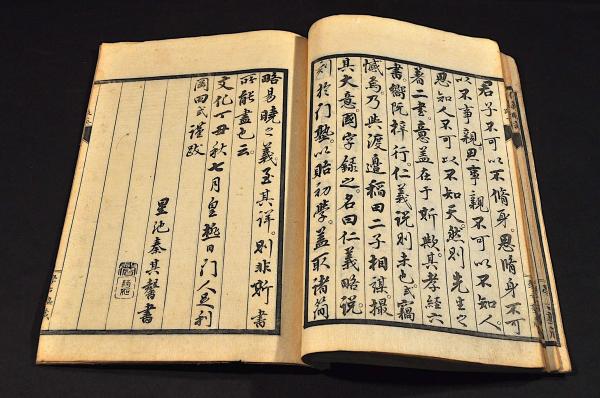 君子不可以不脩身。思脩身不可
以不事親。思事親不可以不知人。
思知人不可以不知天。然則先生之
著二書。意盖在于斯歟。其孝經六
書。嚮既梓行。仁義説則未也。竊
憾焉乃與渡邉稲田二子相謀。撮
其大意國字録之。名曰仁義略説
刻於门塾。以貽初學。盖取諸簡
略易曉之義至其詳。則非斯書
所能盡也云。
文化丁丑秋七月望越日门人足利
岡田式謹跋
星池秦其馨書